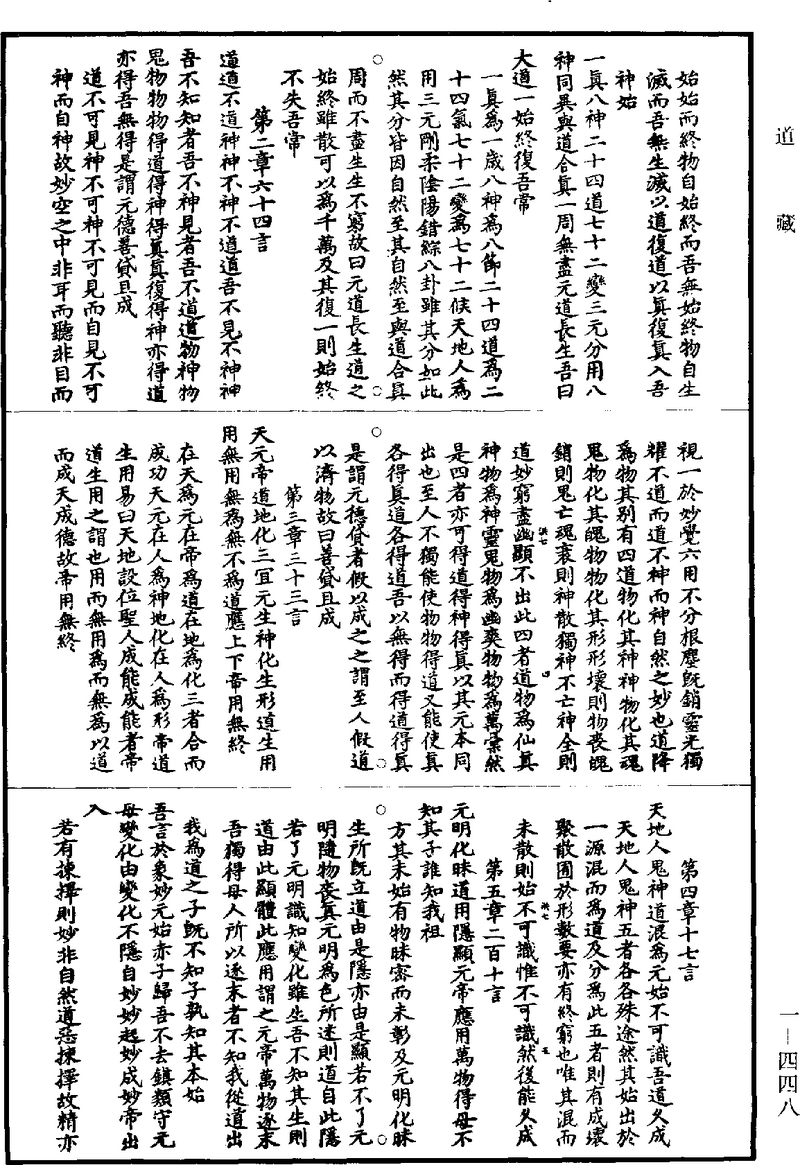 道藏
始始而終物自始終而吾無始終物自生
滅而吾無生滅以道復道以真復真入吾
神始
一真八神二十四道七十二變三元分用八
神同異與道合真一周無盡元道長生吾曰
大道一始終復吾常
一真為一歲八神為八節二十四道為二
十四氣七十二變為七十二候天地人為
用三元剛柔陰陽錯綜八卦雖其分如此
然其分皆因自然至其自然至與道合真
周而不盡生生不窮故曰元道長生道之
始終雖散可以為千萬及其復一則始終
不失吾常
第二章六十四言
道道不道神神不神不道道吾不見不神神
吾不知知者吾不神見者吾不道道物神物
鬼物物物得道得神得真真復得神亦得道
亦得吾無得是謂元德善貸且成
道不可見神不可神不可見而自見不可
神而自神故妙空之中非耳而聽非目而
視一於妙覺六用不分根塵既銷靈光獨
耀不道而道不神而神自然之妙也道降
為物其別有四道物化其神神物化其魂
鬼物化其魄物物化其形形壞則物喪魄
銷則鬼亡魂衰則神散獨神不亡神全則
道妙窮盡幽顯不出此四者道物為仙真
神物為神靈鬼物為幽爽物物為萬彙然
是四者亦可得道得神得真以其元本同
出也至人不獨能使物物得道又能使真
各得真道各得道吾以無得而得道得真
是謂元德貸者假以成之之謂至人假道
以濟物故曰善貸且成
第三章三十三言
天元帝道地化三冝元生神化生形道生用
用無用無為無不為道應上下帝用無終
在天為元在帝為道在地為化三者合而
成功天元在人為神地化在人為形帝道
生用易曰天地設位聖人成能成能者帝
道生用之謂也用而無用為而無為以道
而成天成德故帝用無終
第四章十七言
天地人鬼神道混為元始不可識吾道久成
天地人鬼神五者各各殊途然其始出於
一源混而為道及分為此五者則有成壞
聚散囿於形數要亦有終窮也唯其混而
未散則始不可識惟不可識然後能久成
第五章二百十言
元明化昧道用隱顯元帝應用萬物得母不
知其子誰知我祖
方其未始有物昧密而未彰及元明化昧
生所既立道由是隱亦由是顯若不了元
明隨物喪真元明為色所迷則道自此隱
若了元明識知變化雖生吾不知其生則
道由此顯體此應用謂之元帝萬物逐末
吾獨得母人所以逐末者不知我從道出
我為道之子既不知子孰知其本始
吾言於象妙元始亦子歸吾不去鎮類守元
母變化由變化不隱自妙妙起妙成妙帝出
入
若有揀擇則妙非自然道惡揀擇故精亦
一—四四八